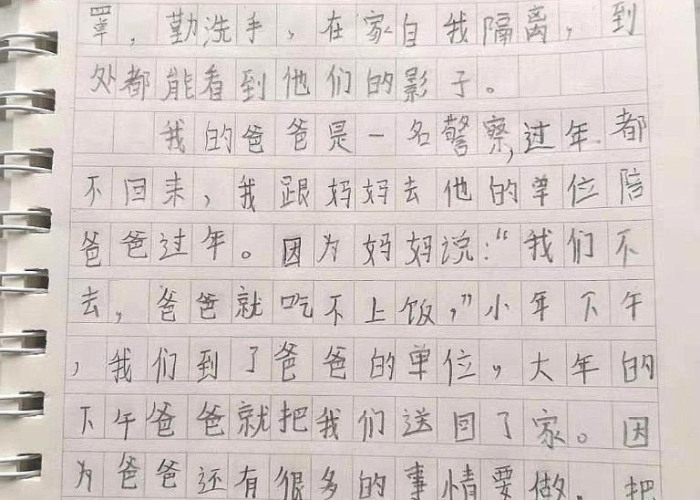 罩，勤洗手，在家自我隔离，到
处都能看到他们的影子。
我的爸爸是一名警察，过年都
不回来，我跟妈妈去他的单位陪
爸爸过年。因为妈妈说：“我们不
去，爸爸就吃不上饭，”小年下午
，我们到了爸爸的单位，大年的
下午爸爸就把我们送回了家。因
为爸爸还有很多的事情要做，把